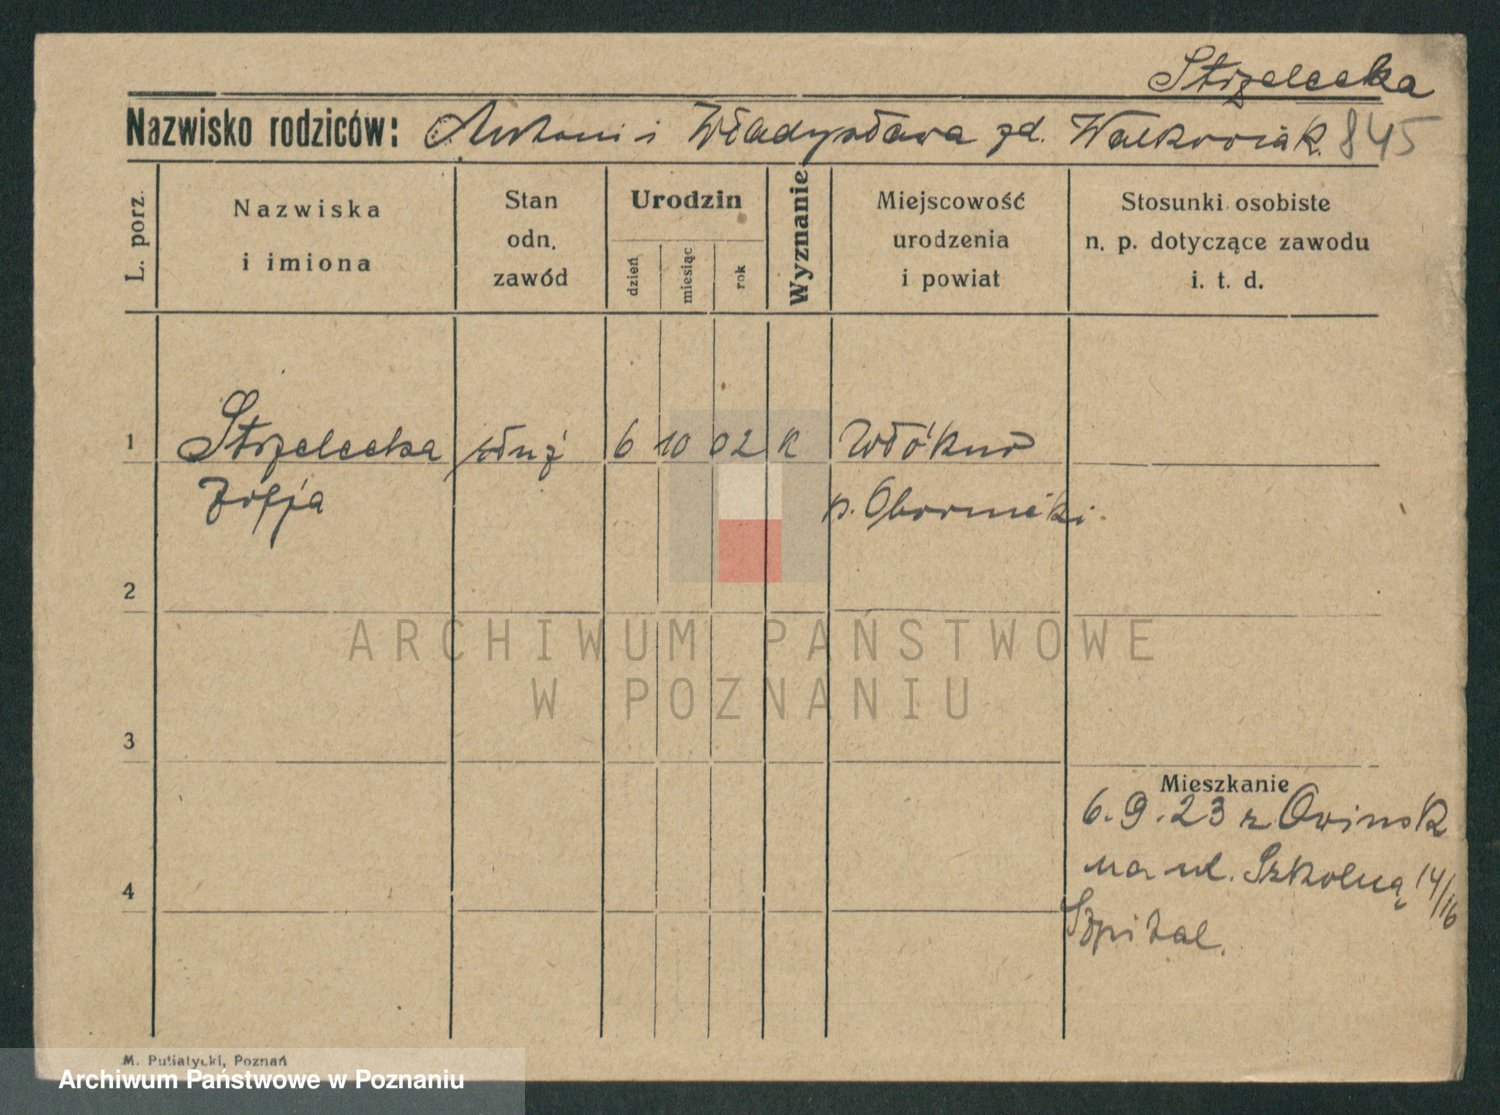 Strzelecka
Nazwisko rodziców: Antoni i Władysława zd. Walkowiak. 845
L. porz.
Nazwiska
i imiona
Stan
odn.
zawód
Urodzin
dzień
miesiąc
rok
Wyznanie
Miejscowość
urodzenia
i powiat
Stosunki osobiste
n. p. dotyczące zawodu
i. t. d.
1 Strzelecka służ 6 10 02 k Włókno
Zofja p. Oborniki.
2
ARCHIWUM PAŃSTWOWE
W POZNANIU
3
Mieszkanie
6.9.23 z Owinsk
na ul. Szkolną 14/16
4
Szpital.
M. Putiatycki, Poznań
Archiwum Państwowe w Poznaniu